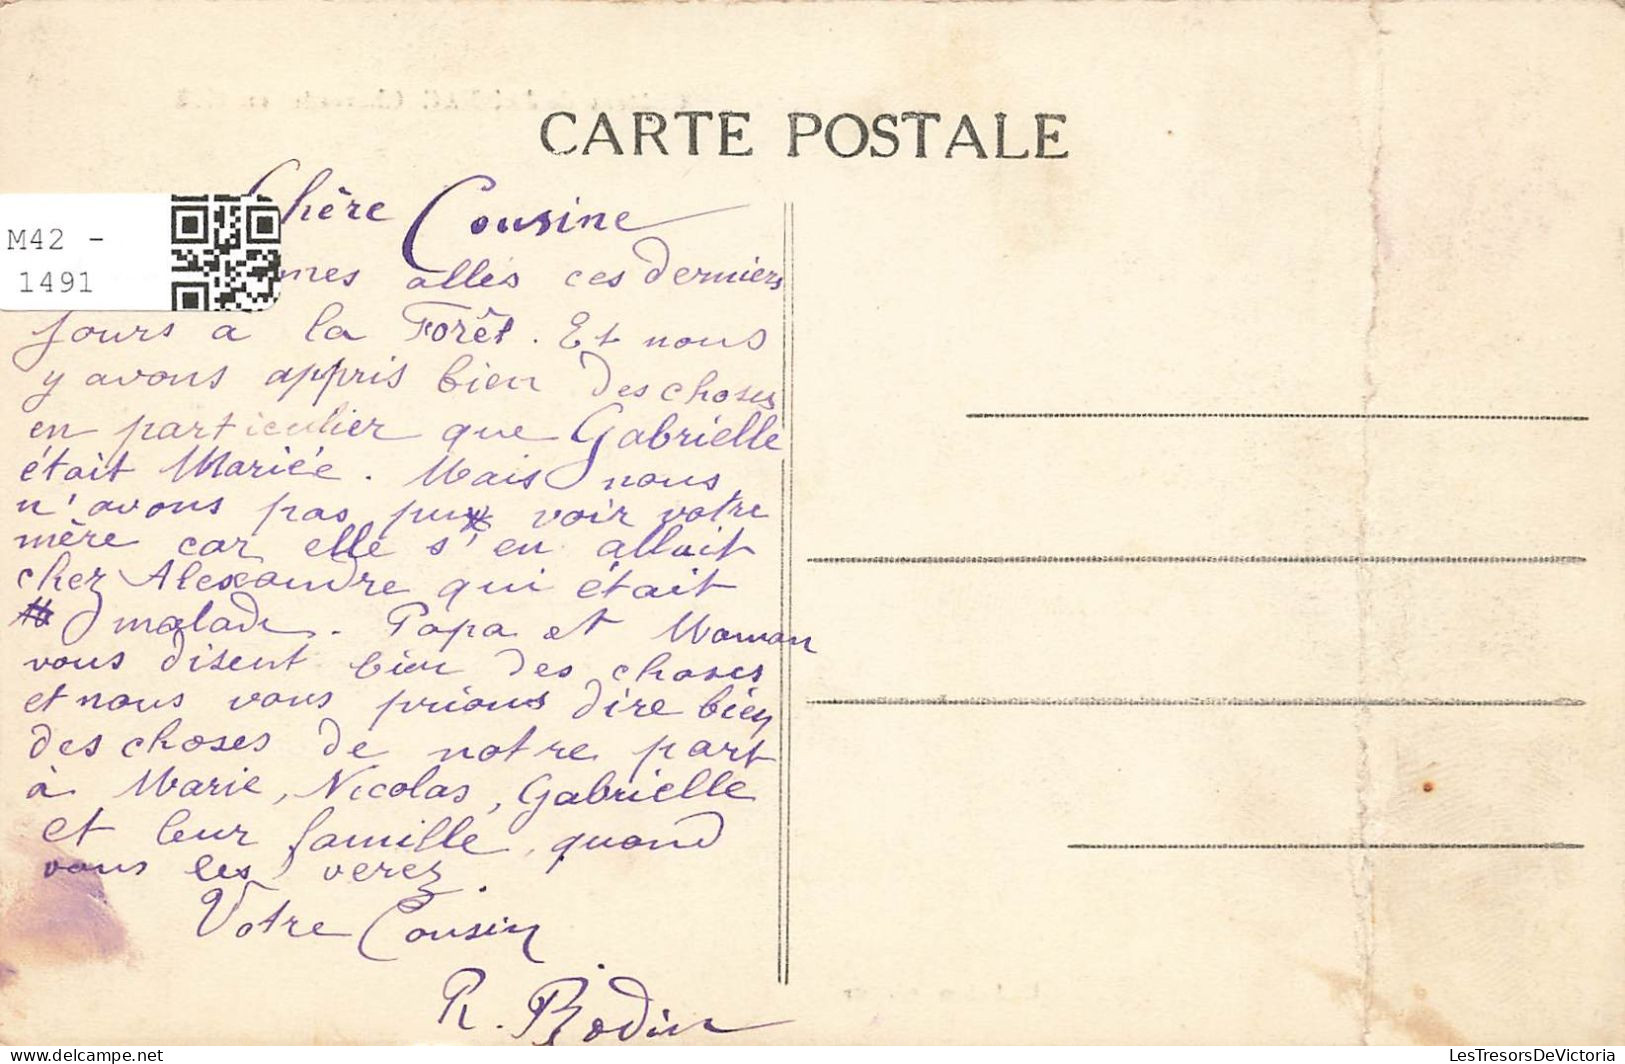 CARTE POSTALE
M42 -
1491
Chère Cousine
mes allés ces derniers
jours a la Forêt. Et nous
y avons appris bien des choses
en particulier que Gabrielle
était Mariée. Mais nous
n'avons pas pu voir votre
mère car elle s'en allait
chez Alexandre qui était
malade. Papa et Maman
vous disent bien des choses
et nous vous prions dire bien
des choses de notre part
à Marie, Nicolas, Gabrielle
et leur famille, quand
vous les verez.
Votre Cousin
R. Bodin
delcampe.net
LesTresorsDeVictoria